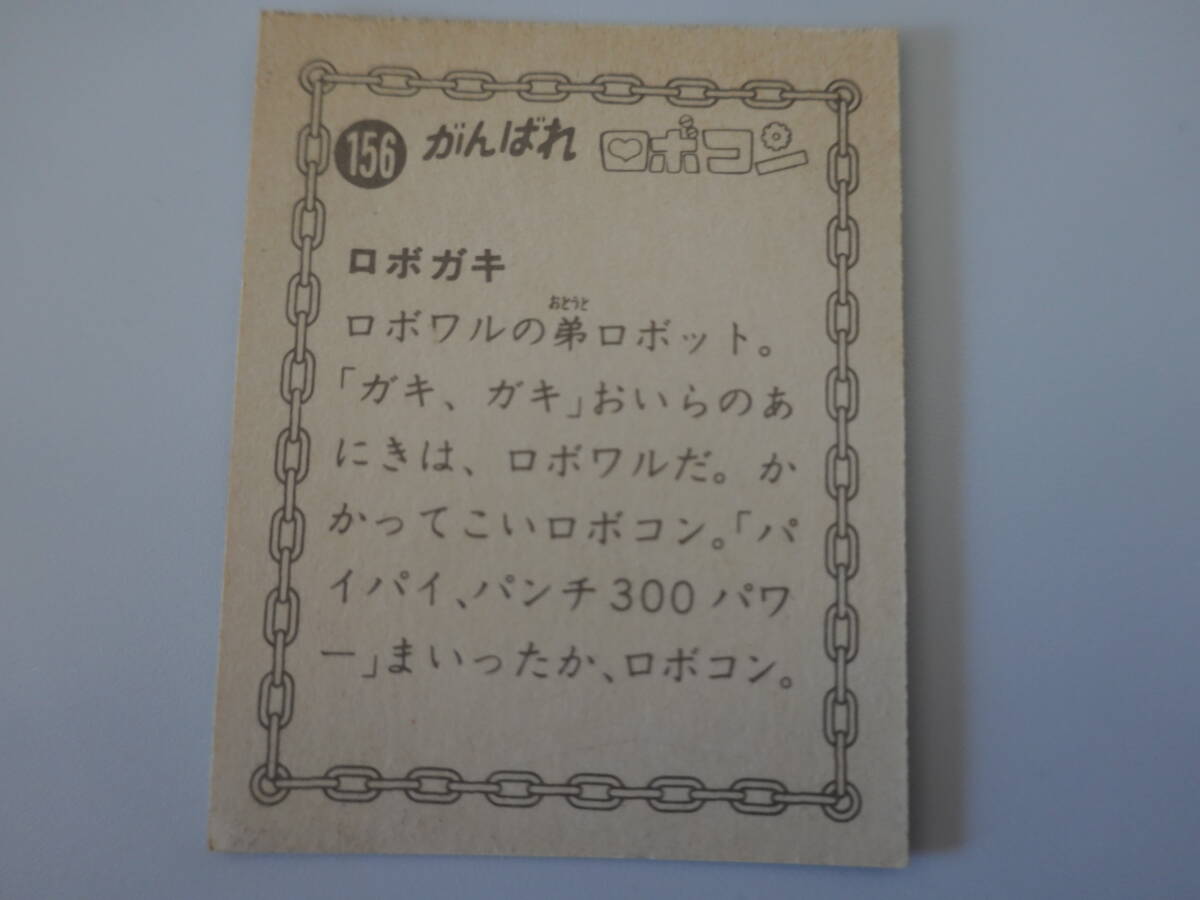 156 がんばれ ロボコン
ロボガキ
おとうと
ロボワルの弟ロボット。
「ガキ、ガキ」おいらのあ
にきは、ロボワルだ。か
かってこいロボコン。「パ
イパイ、パンチ300パワ
ー」まいったか、ロボコン。